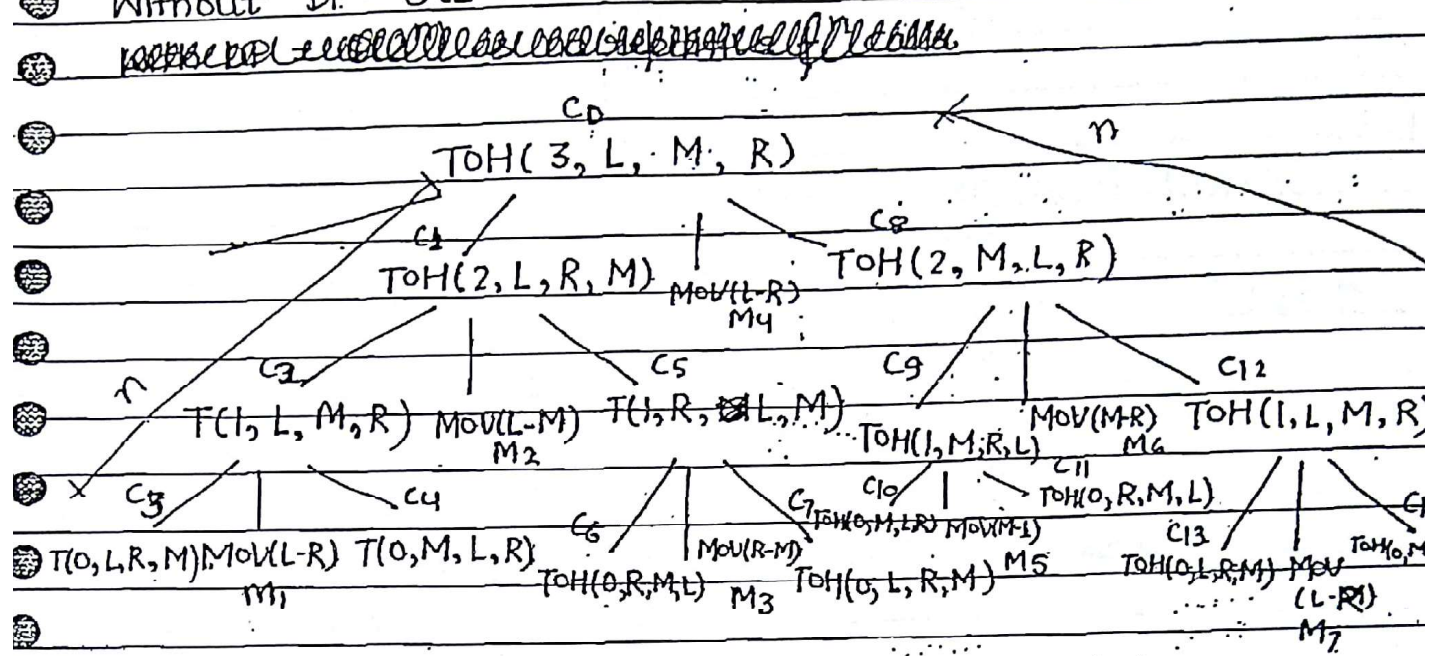 Without
CD
n
TOH( 3, L, M, R)
C1
C8
TOH(2, L, R, M) MOV(L-R) TOH(2, M, L, R)
M4
C2 C5 C9 C12
n
T(1, L, M, R) MOV(L-M) T(1, R, L, M) TOH(1, M, R, L) MOV(M-R) TOH(1, L, M, R)
M2 M6
C3 C4 C6 C7 C10 C11 TOH(0, R, M, L) C13
T(0, L, R, M) MOV(L-R) T(0, M, L, R) TOH(0, R, M, L) MOV(R-M) TOH(0, L, R, M) TOH(0, M, L, R) TOH(0, L, R, M) MOV TOH(0, M
M1 M3 M5 (L-R)
M7